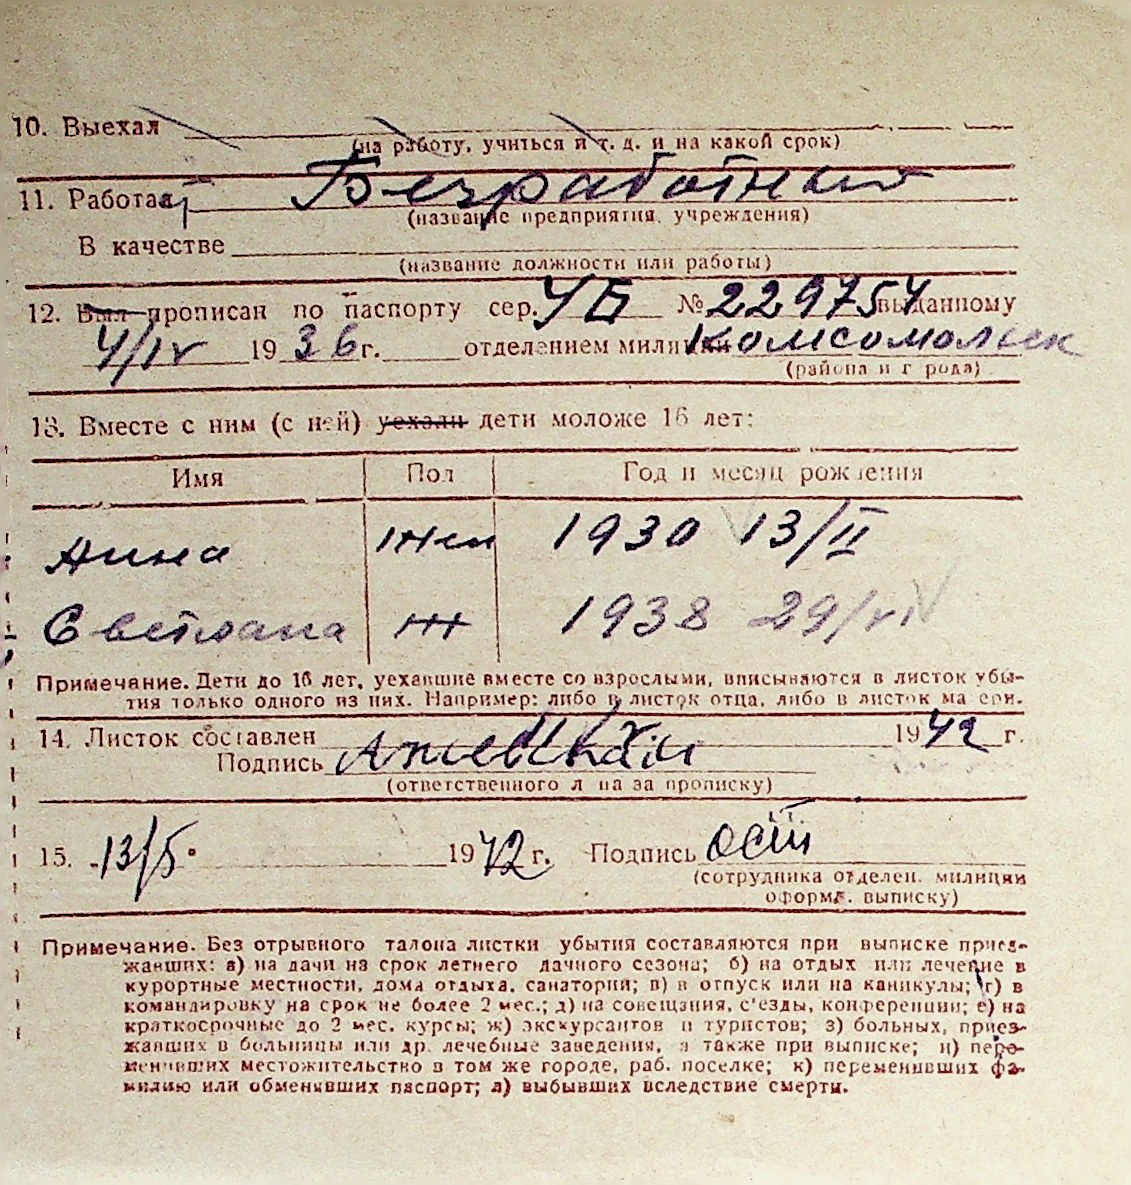 10. Выехал
(на работу, учиться и т. д. и на какой срок)
11. Работает Безработный
(название предприятия, учреждения)
В качестве
(название должности или работы)
12. Был прописан по паспорту сер. УБ № 229754 выданному
4/IV 1936 г. отделением милиции Комсомольск
(района и города)
13. Вместе с ним (с ней) уехали дети моложе 16 лет:
Имя Пол Год и месяц рождения
Анна Жен 1930 13/II
Светлана Ж 1938 29/VI
Примечание. Дети до 16 лет, уехавшие вместе со взрослыми, вписываются в листок убы-
тия только одного из них. Например: либо в листок отца, либо в листок матери.
14. Листок составлен 1942 г.
Подпись
(ответственного лица за прописку)
15. 13/5 1942 г. Подпись
(сотрудника отделен. милиции
оформл. выписку)
Примечание. Без отрывного талона листки убытия составляются при выписке приез-
жавших: а) на дачи на срок летнего дачного сезона; б) на отдых или лечение в
курортные местности, дома отдыха, санатории; в) в отпуск или на каникулы; г) в
командировку на срок не более 2 мес.; д) на совещания, с'езды, конференции; е) на
краткосрочные до 2 мес. курсы; ж) экскурсантов и туристов; з) больных, приез-
жавших в больницы или др. лечебные заведения, а также при выписке; и) пере-
менивших местожительство в том же городе, раб. поселке; к) переменивших фа-
милию или обменивших паспорт; л) выбывших вследствие смерти.